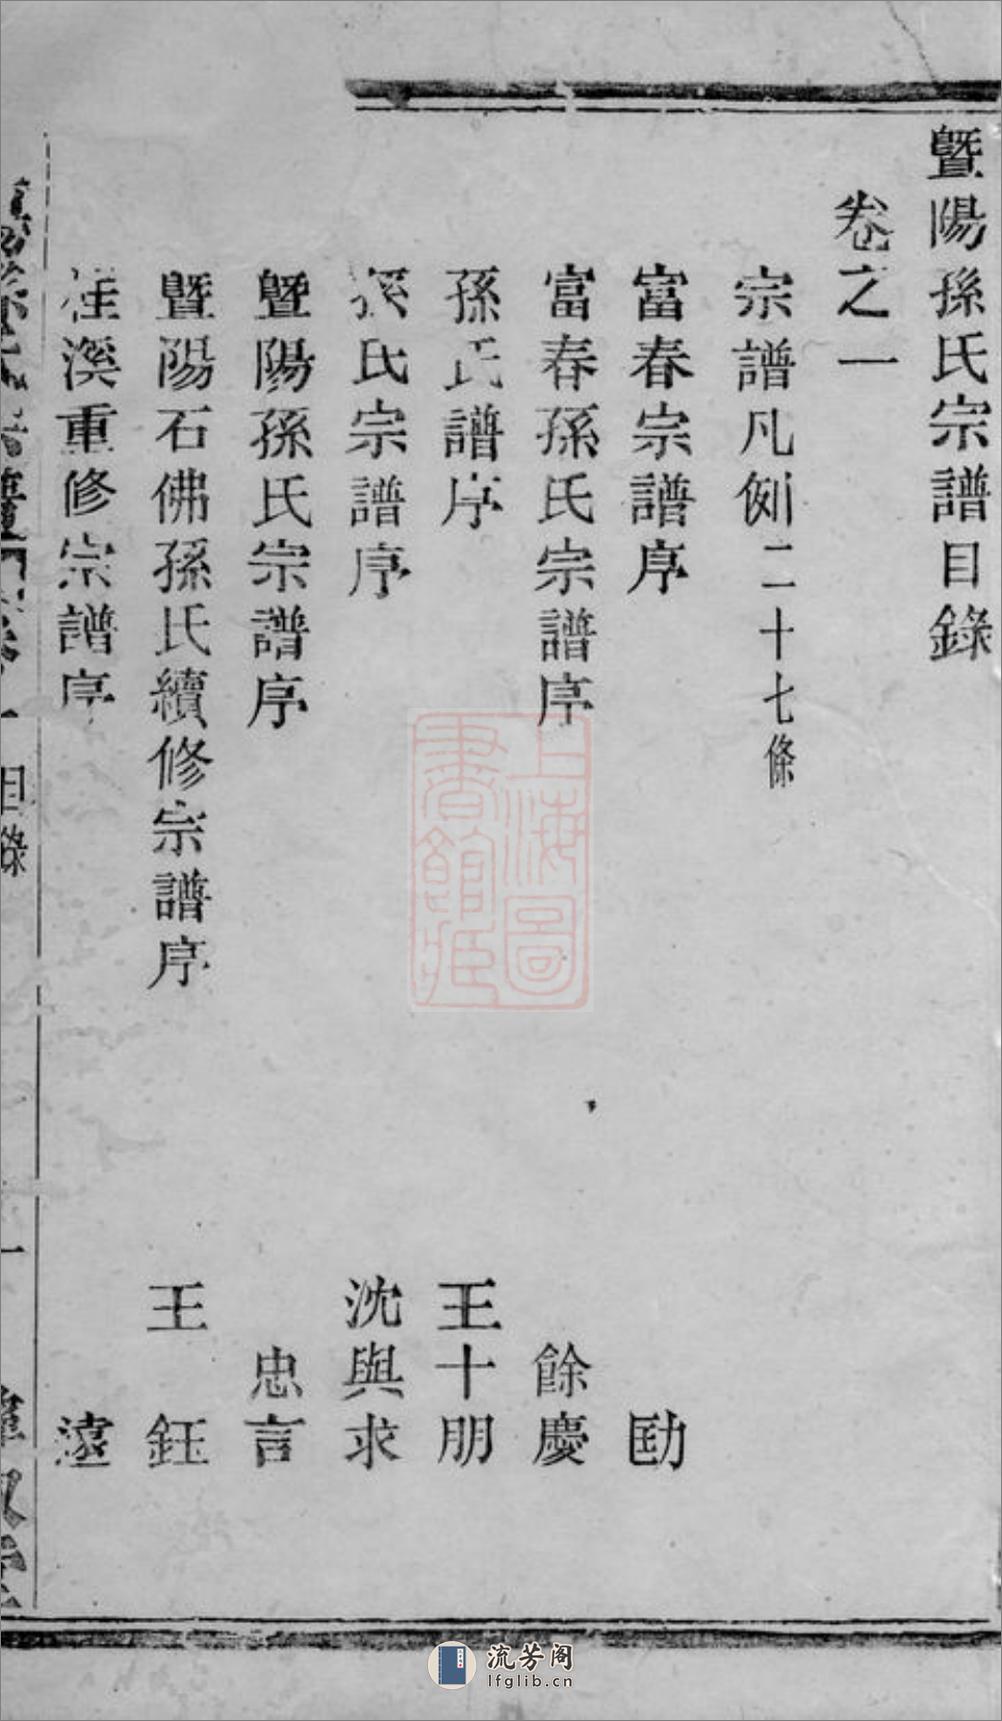 暨陽孫氏宗譜目錄
卷之一
宗譜凡例二十七條
富春宗譜序 劻
富春孫氏宗譜序 餘慶
孫氏譜序 王十朋
孫氏宗譜序 沈與求
暨陽孫氏宗譜序 忠言
暨陽石佛孫氏續修宗譜序 王鈺
桂溪重修宗譜序 遠
目錄
一
上海圖書館藏
流芳阁
lfglib.cn